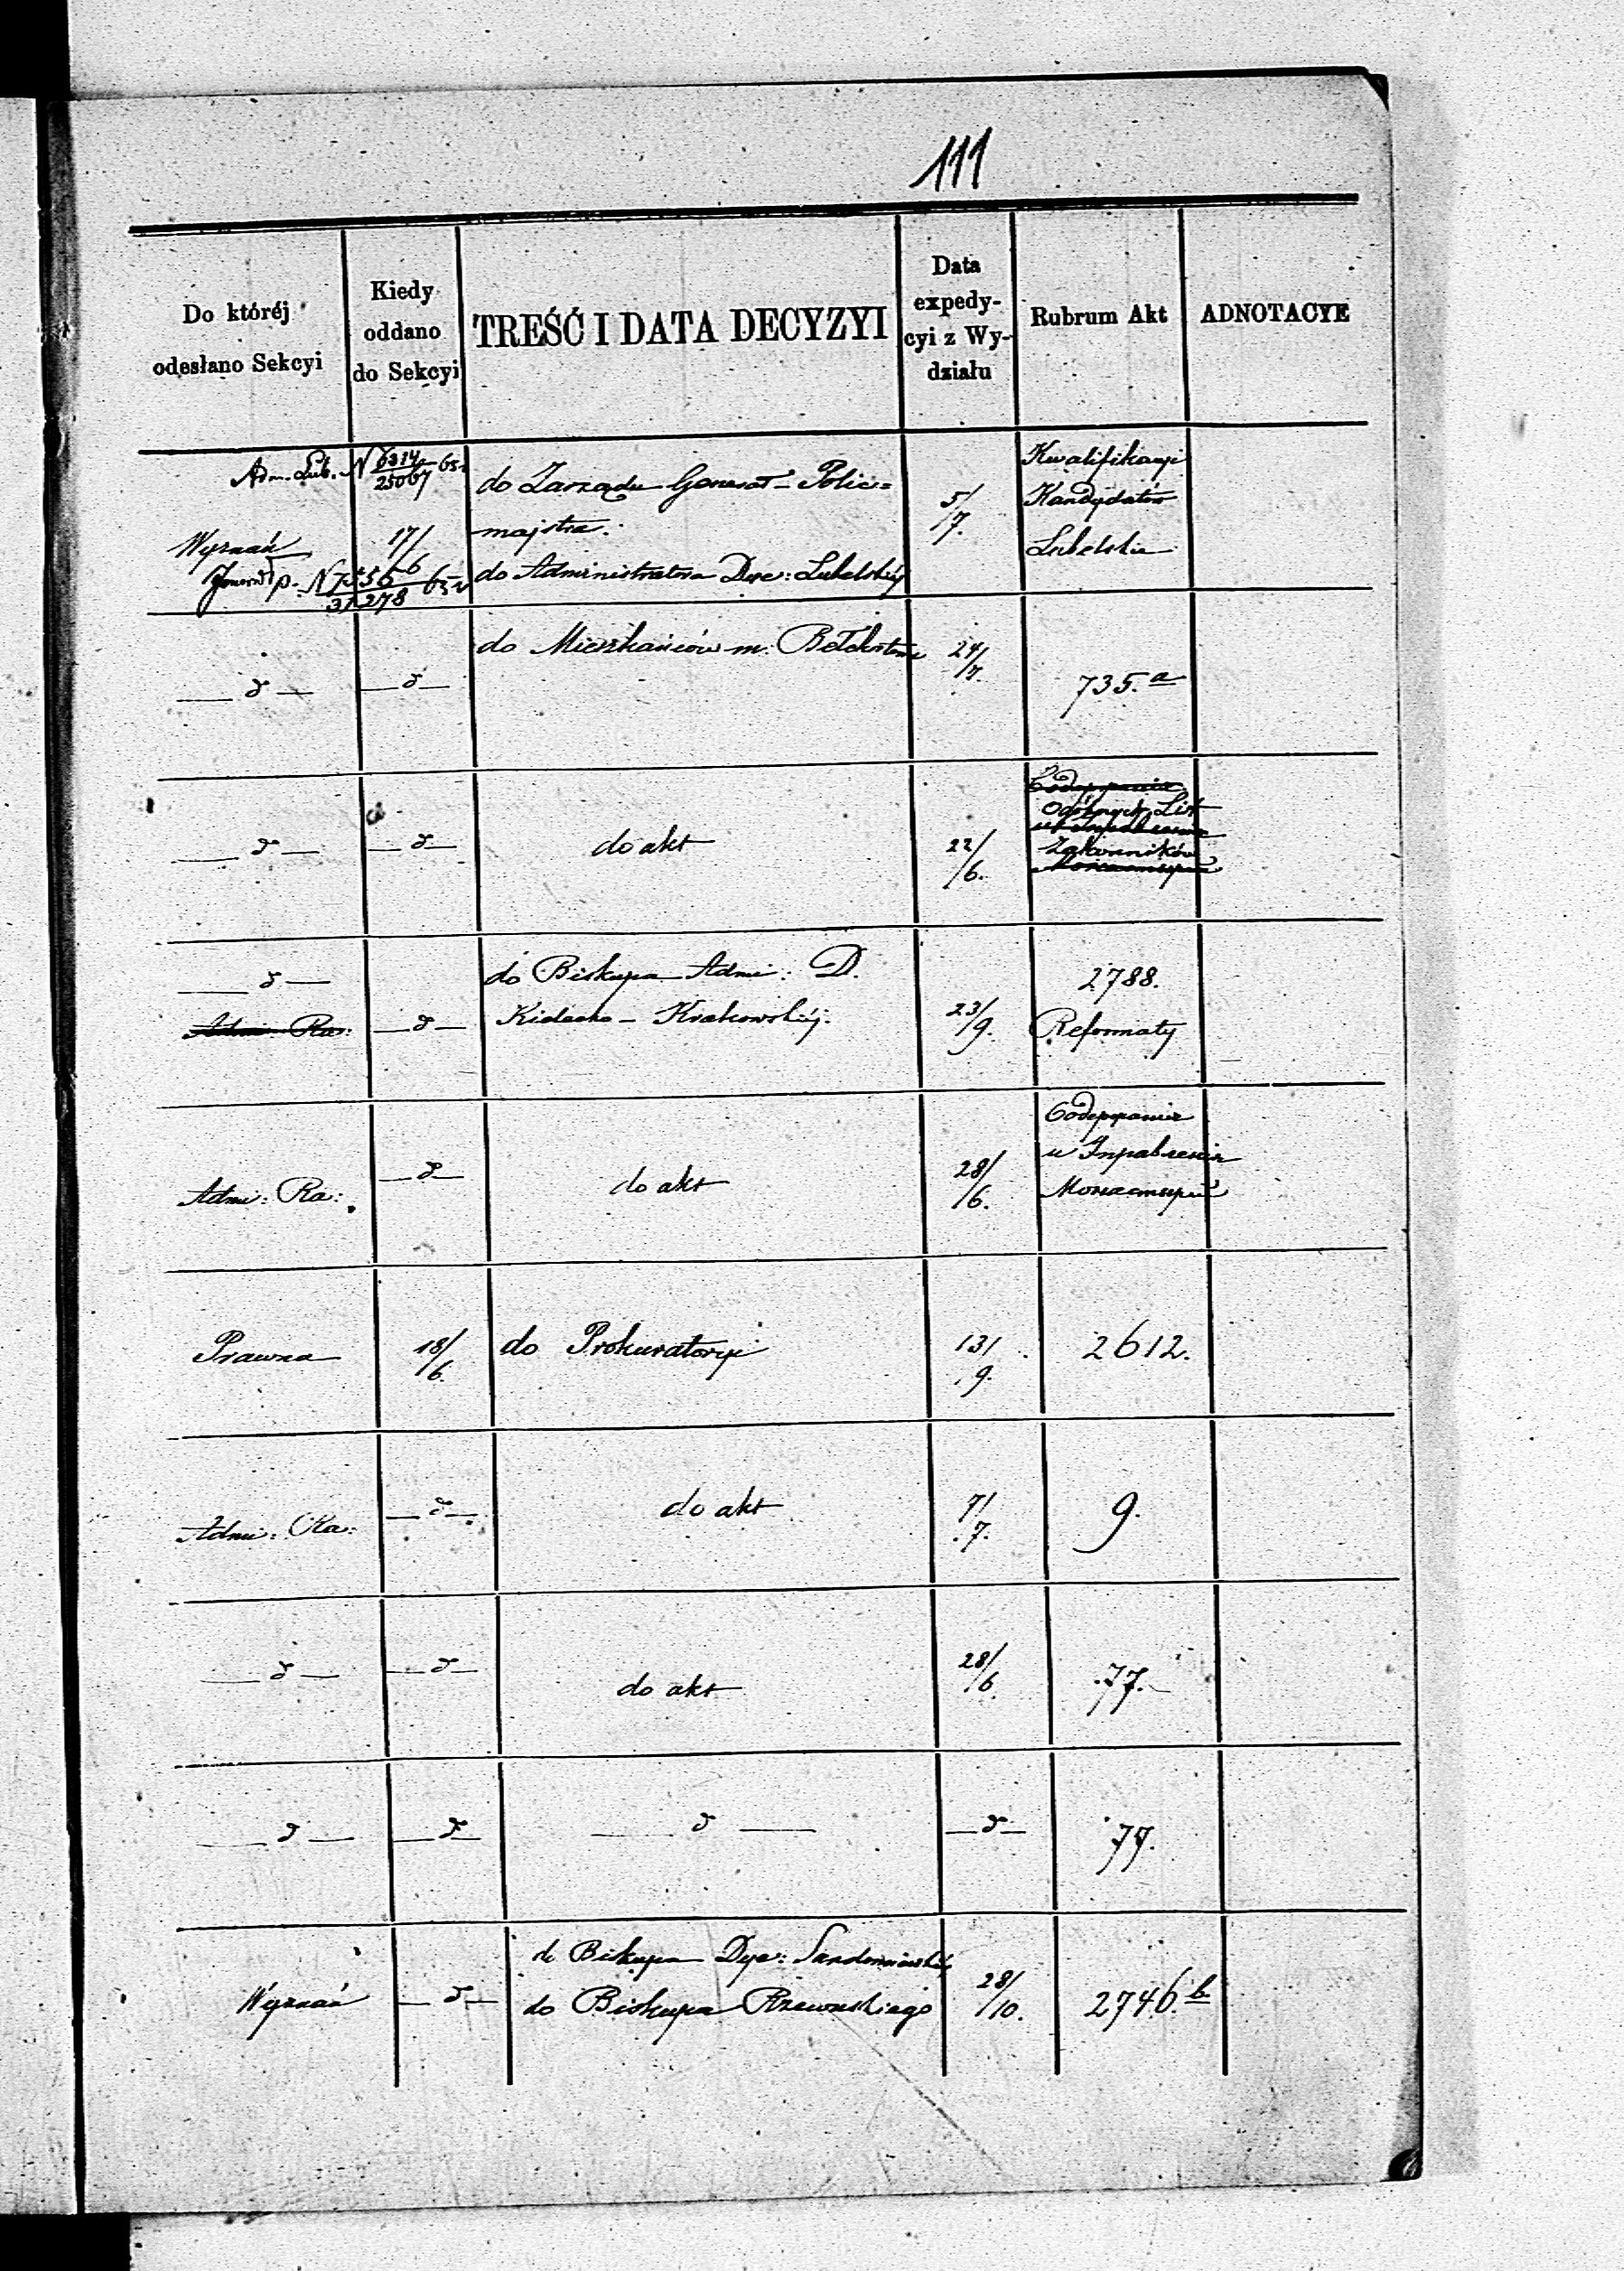 111
Do któréj
odesłano Sekcyi
Kiedy
oddano
do Sekcyi
TREŚĆ I DATA DECYZYI
Data
expedy-
cyi z Wy-
działu
Rubrum Akt
ADNOTACYE
Adm. Lub. N 6314/25067 65
Wyznań
17/6
p. N 7356/31278 65
do Zarządu Generał-Polic=
majstra.
do Administratora Dye: Lubelskiéj
5/7.
Kwalifikacyi
Kandydatów
Lubelskie
— d — — d —
do Mieszkańców m. Bełchatowa
24/7.
735. a
— d — — d —
do akt
22/6.
Ogólnych List
Zakonników
— d —
Adm: Ra:
— d —
do Biskupa Admi: D.
Kielecko-Krakowskiéj.
23/9.
2788.
Reformaty
Admi: Ra:
— d —
do akt
28/6.
Содержание
и Управление
Монастырей
Prawna
18/6.
do Prokuratoryi
13/9.
2612.
Admi: Ra:
— d —
do akt
7/7.
9.
— d — — d —
do akt
28/6
77.
— d — — d — — d — — d —
77.
Wyznań
— d —
do Biskupa Dye: Sandomierskiéj
do Biskupa Rzewuskiego
28/10.
2746. b